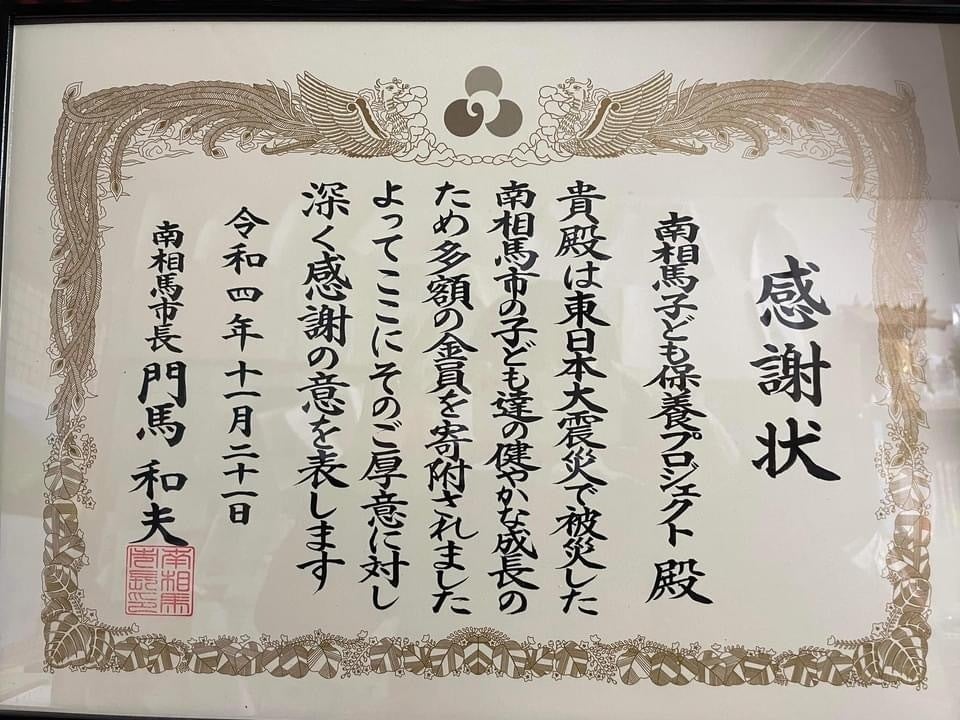 感謝状
南相馬子ども保養プロジェクト 殿
貴殿は東日本大震災で被災した
南相馬市の子ども達の健やかな成長の
ため多額の金員を寄附されました
よってここにそのご厚意に対し
深く感謝の意を表します
令和四年十一月二十一日
南相馬市長 門馬和夫
南相馬市長印